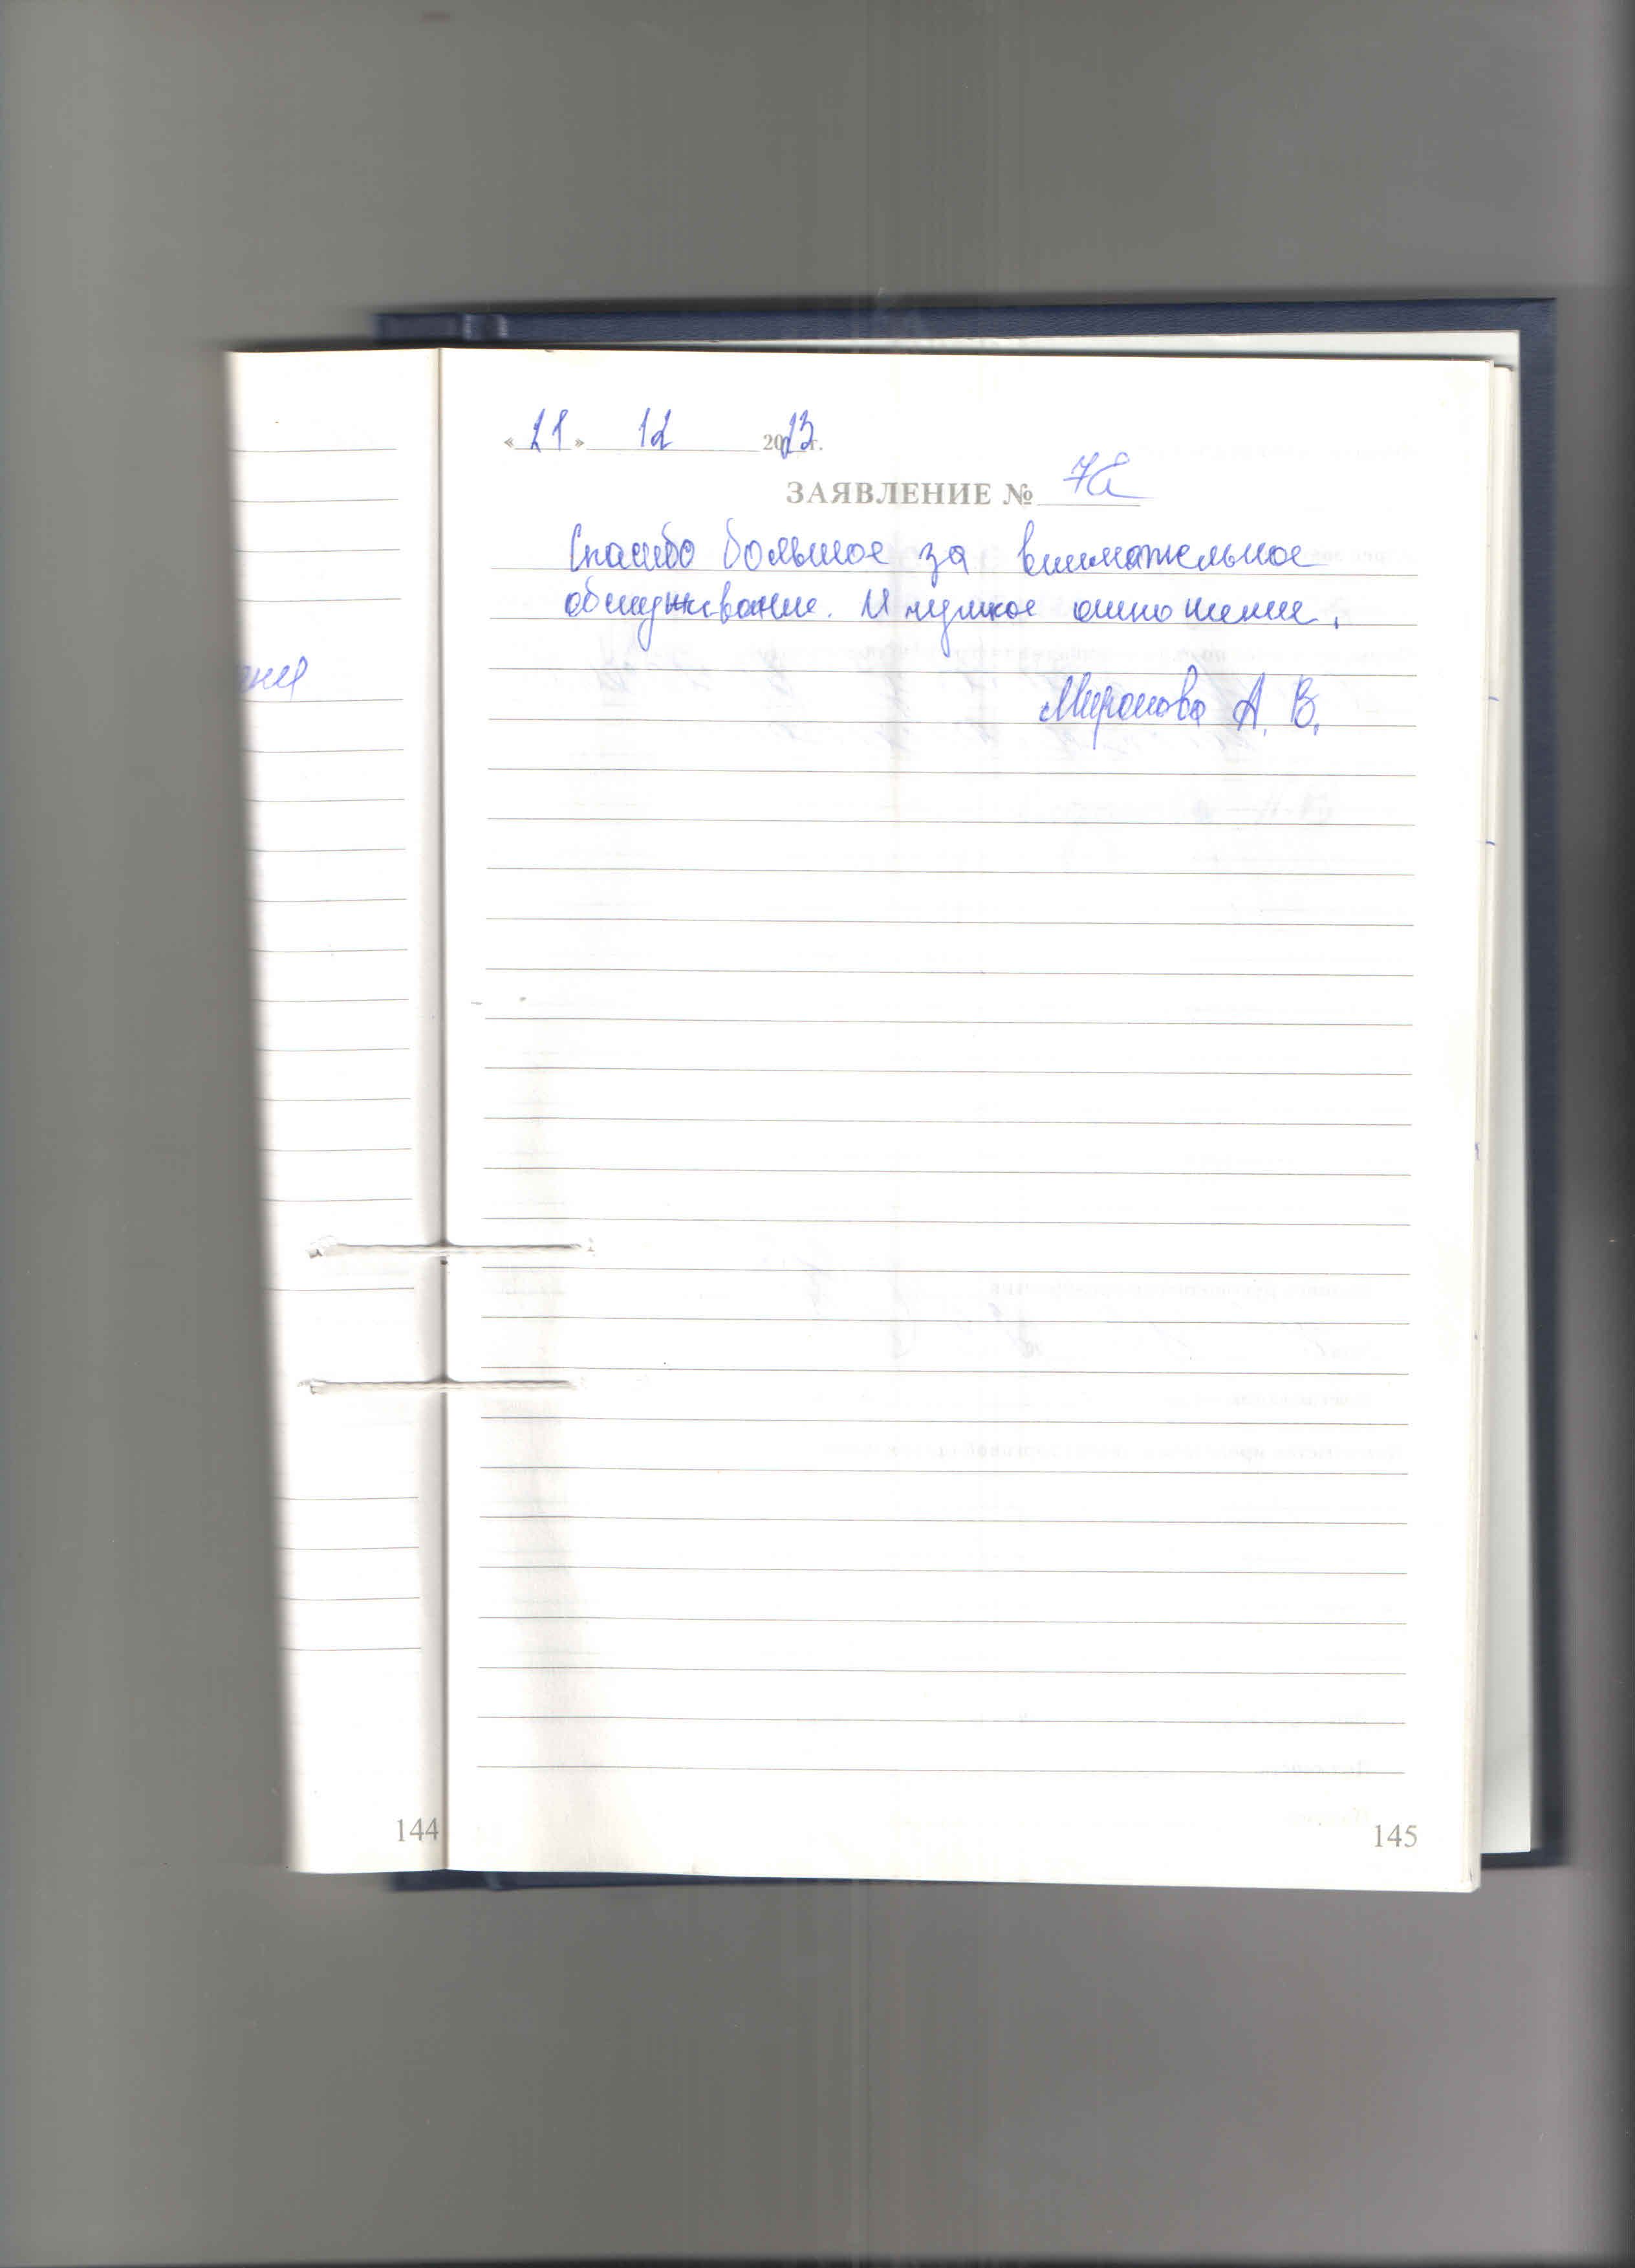 « 21 » 12 2023 г.
ЗАЯВЛЕНИЕ №
Спасибо большое за внимательное
обслуживание. И чуткое отношение.
Миронова А. В.
144
145